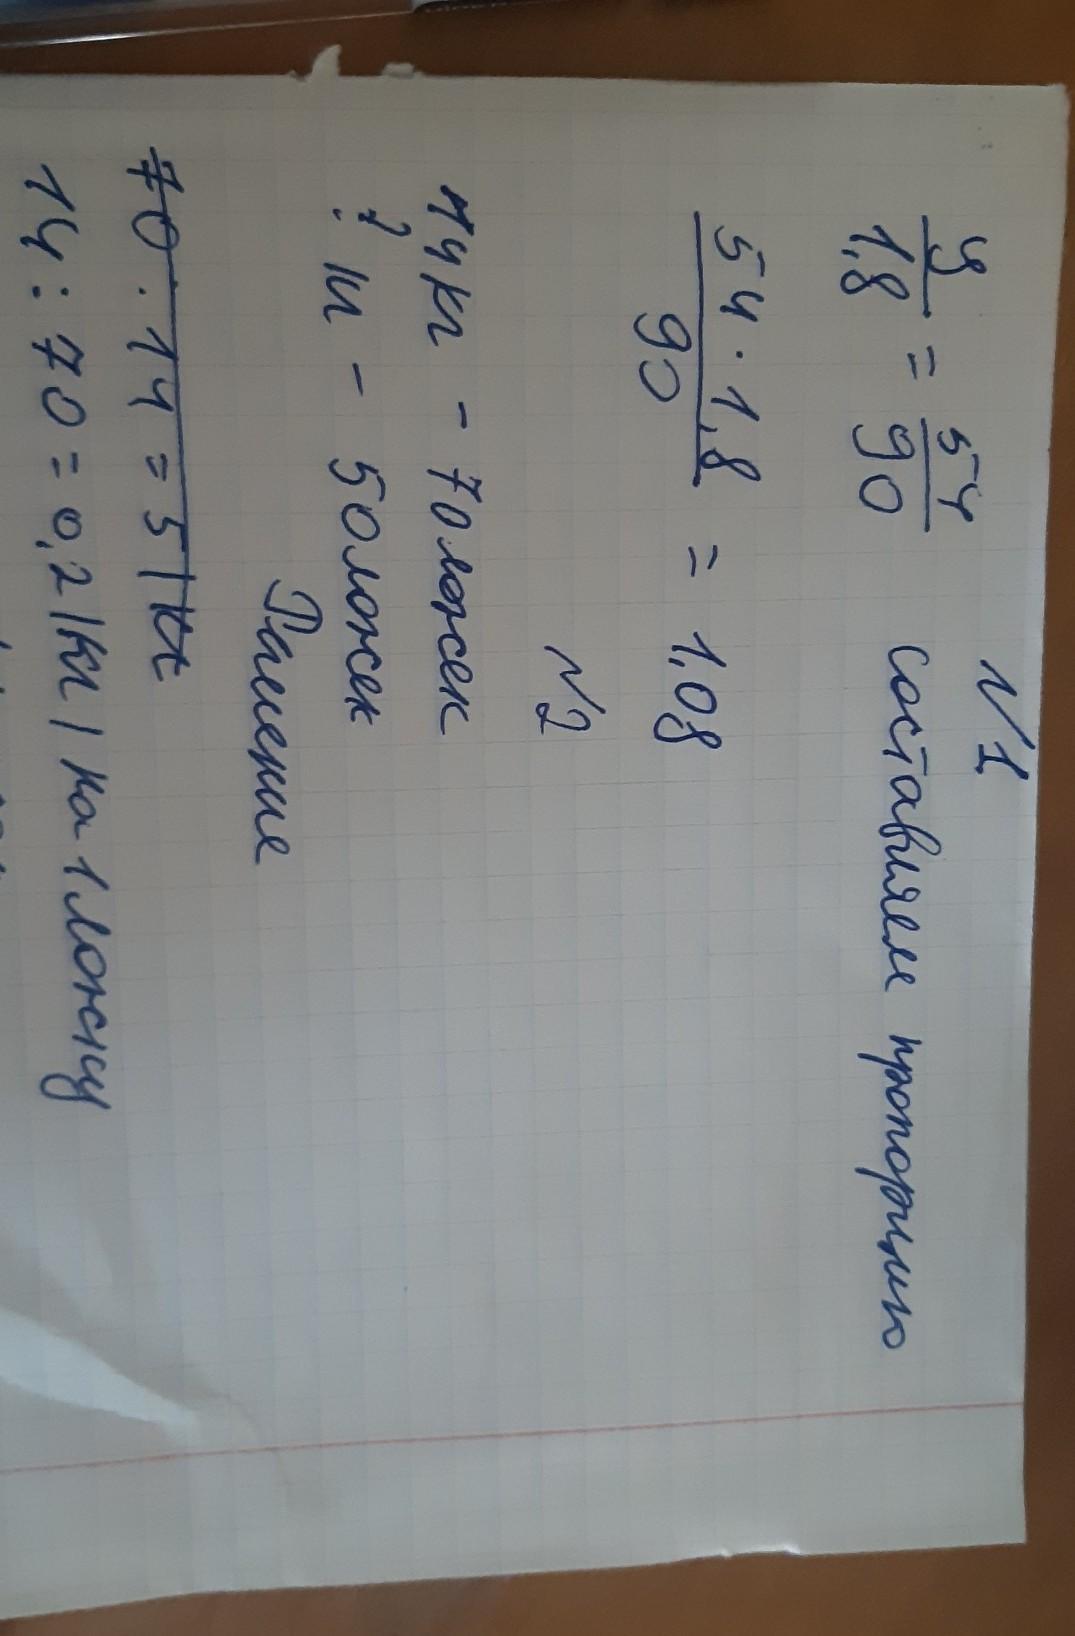 №1
у/1,8 = 54/90 составляем пропорцию
54·1,8/90 = 1,08
№2
14кг – 70ложек
? кг – 50ложек
Решение
70·14=5
14:70=0,2|кг| на 1 ложку